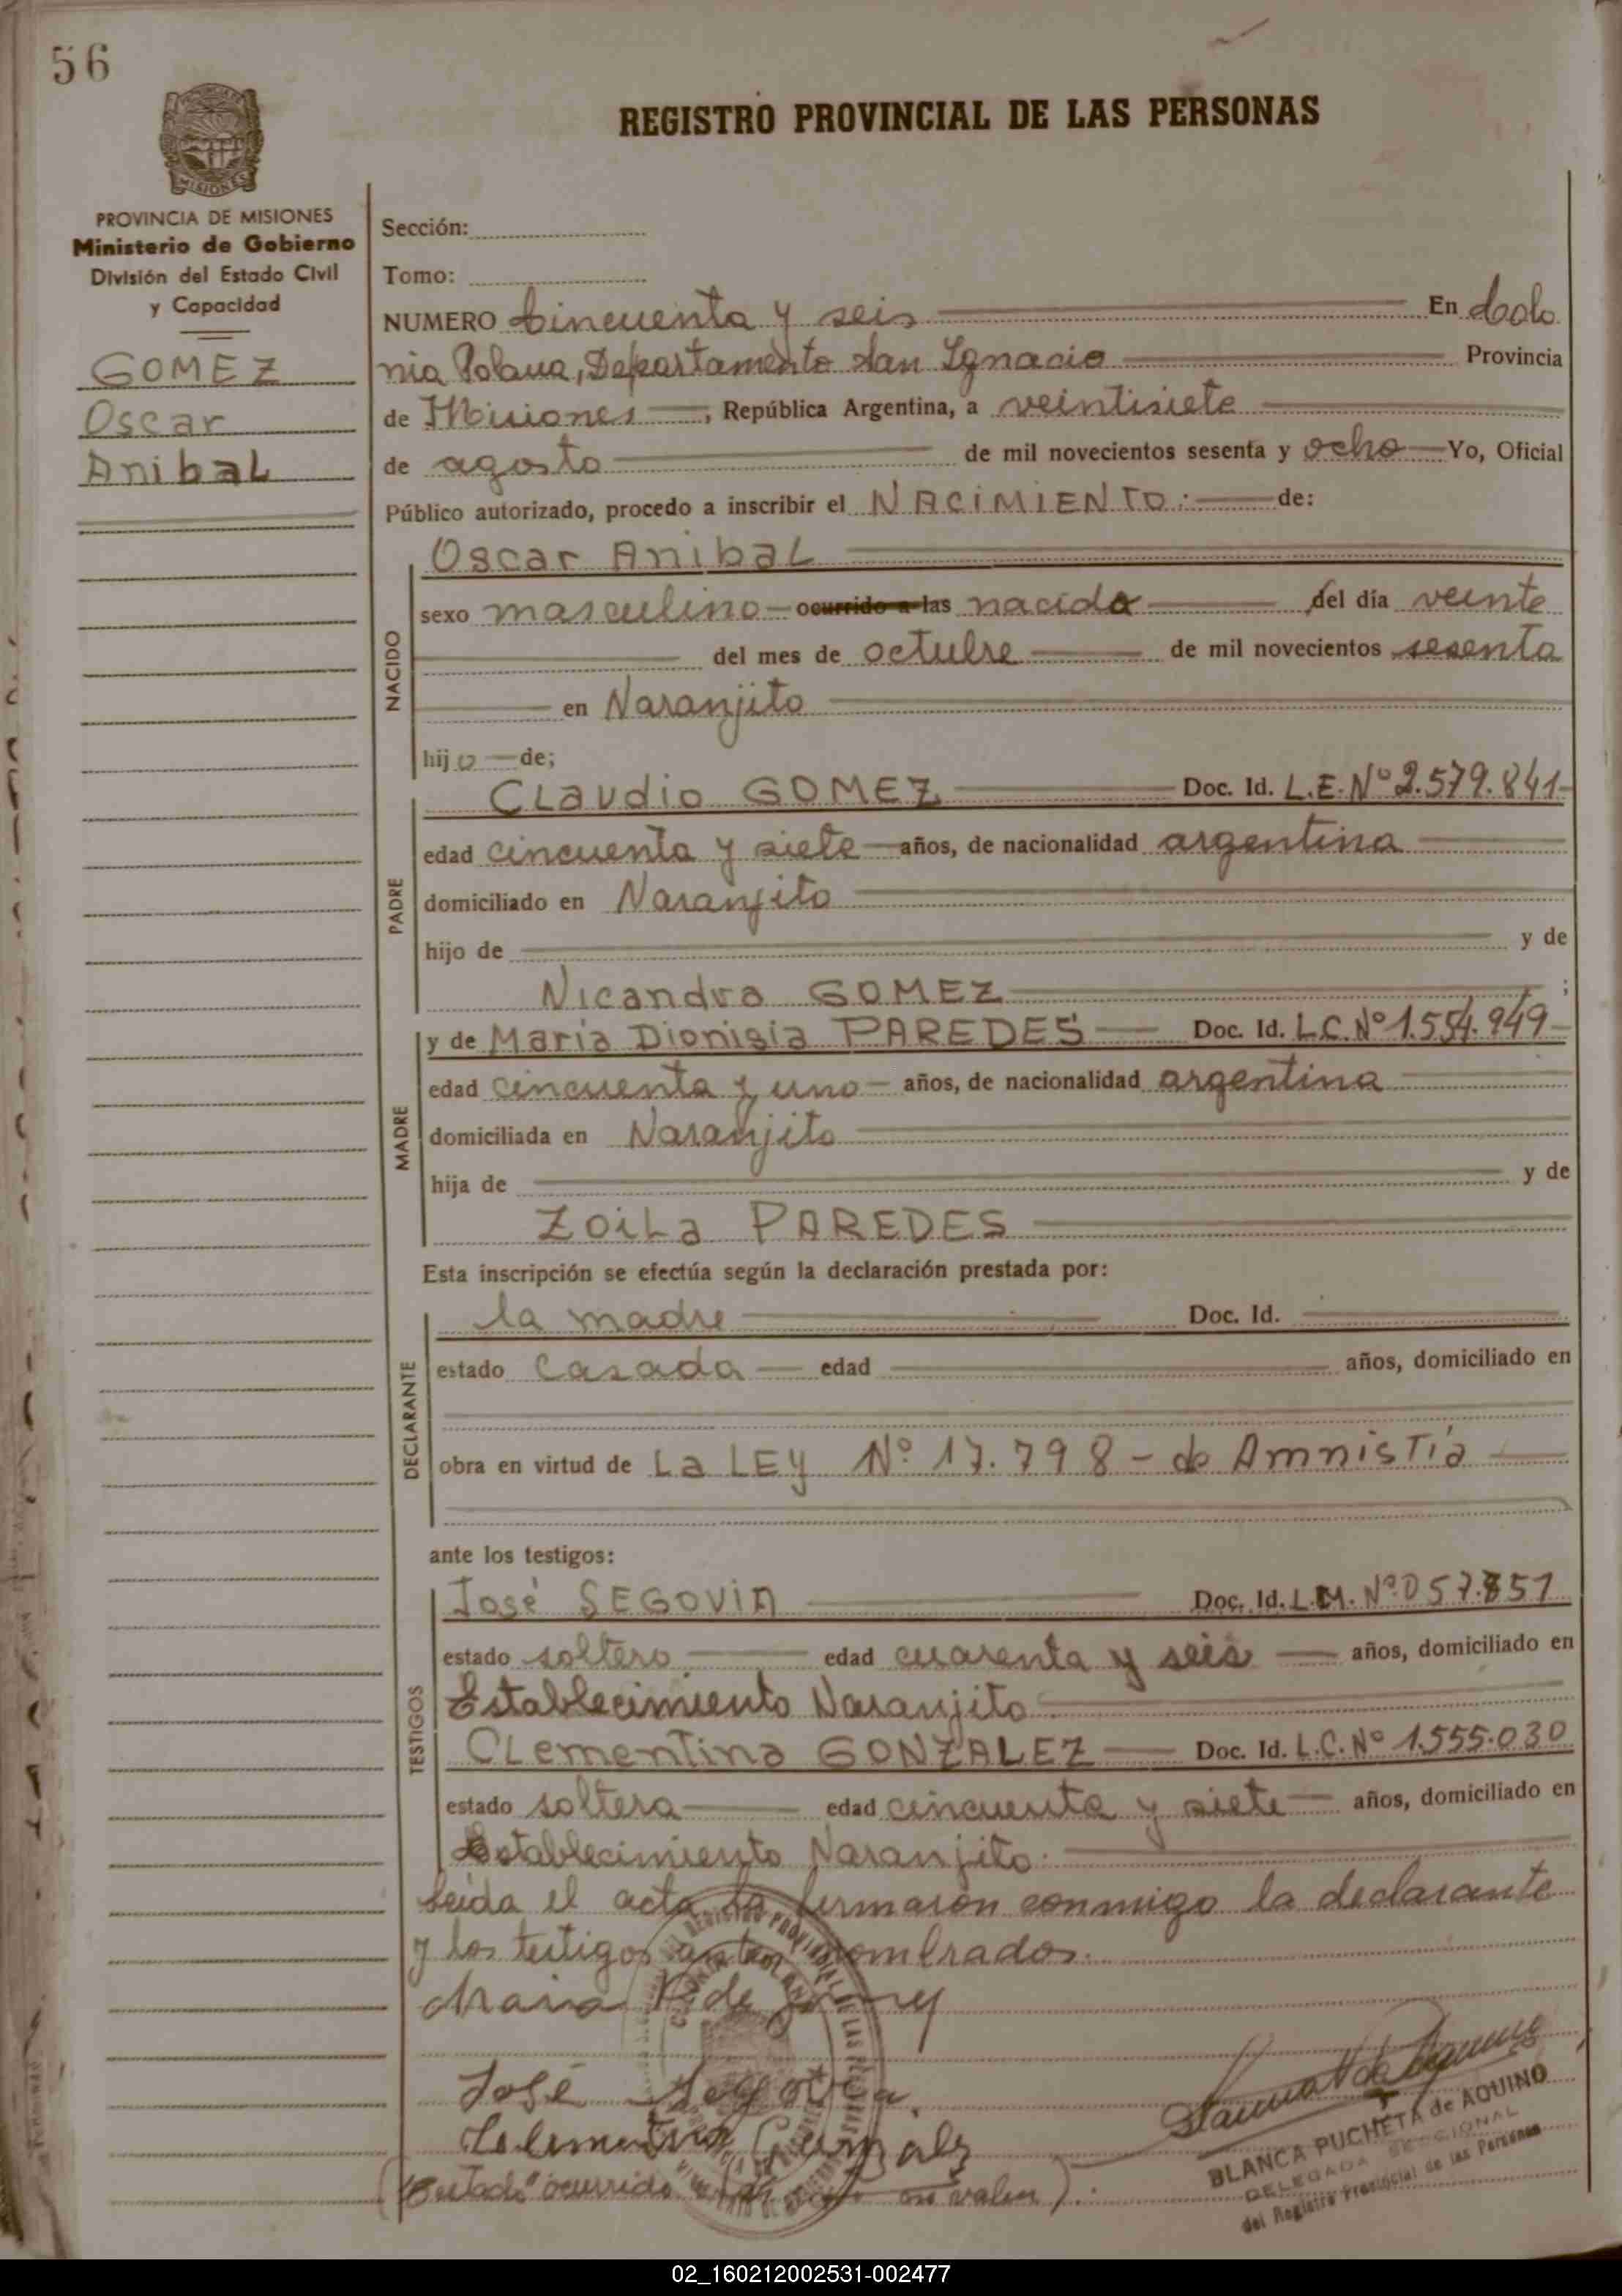 56
REGISTRO PROVINCIAL DE LAS PERSONAS
PROVINCIA DE MISIONES
Ministerio de Gobierno
División del Estado Civil
y Capacidad
GOMEZ
Oscar
Anibal
Sección:
Tomo:
NUMERO Cincuenta y seis En Colo
nia Polana, Departamento San Ignacio Provincia
de Misiones, República Argentina, a veintisiete
de agosto de mil novecientos sesenta y ocho Yo, Oficial
Público autorizado, procedo a inscribir el NACIMIENTO: de:
Oscar Anibal
NACIDO
sexo masculino ocurrido a las nacido del día veinte
del mes de octubre de mil novecientos sesenta
en Naranjito
hijo de;
PADRE
Claudio GOMEZ Doc. Id. L.E. Nº 2.579.841
edad cincuenta y siete años, de nacionalidad argentina
domiciliado en Naranjito
hijo de y de
Nicandra GOMEZ ;
MADRE
y de Maria Dionisia PAREDES Doc. Id. L.C. Nº 1.554.949
edad cincuenta y uno años, de nacionalidad argentina
domiciliada en Naranjito
hija de y de
Zoila PAREDES
Esta inscripción se efectúa según la declaración prestada por:
DECLARANTE
la madre Doc. Id.
estado casada edad años, domiciliado en
obra en virtud de La LEY Nº 17.798 - de Amnistía
ante los testigos:
TESTIGOS
José SEGOVIA Doc. Id. L.M. Nº 057.851
estado soltero edad cuarenta y seis años, domiciliado en
Establecimiento Naranjito
Clementina GONZALEZ Doc. Id. L.C. Nº 1.555.030
estado soltera edad cincuenta y siete años, domiciliado en
Establecimiento Naranjito.
Leída el acta la firmaron conmigo la declarante
y los testigos antes nombrados.
Maria P. de Gomez
José Segovia
BLANCA PUCHETA de AQUINO
DELEGADA SECCIONAL
del Registro Provincial de las Personas
"Testado" ocurrido no valen).
02_160212002531-002477